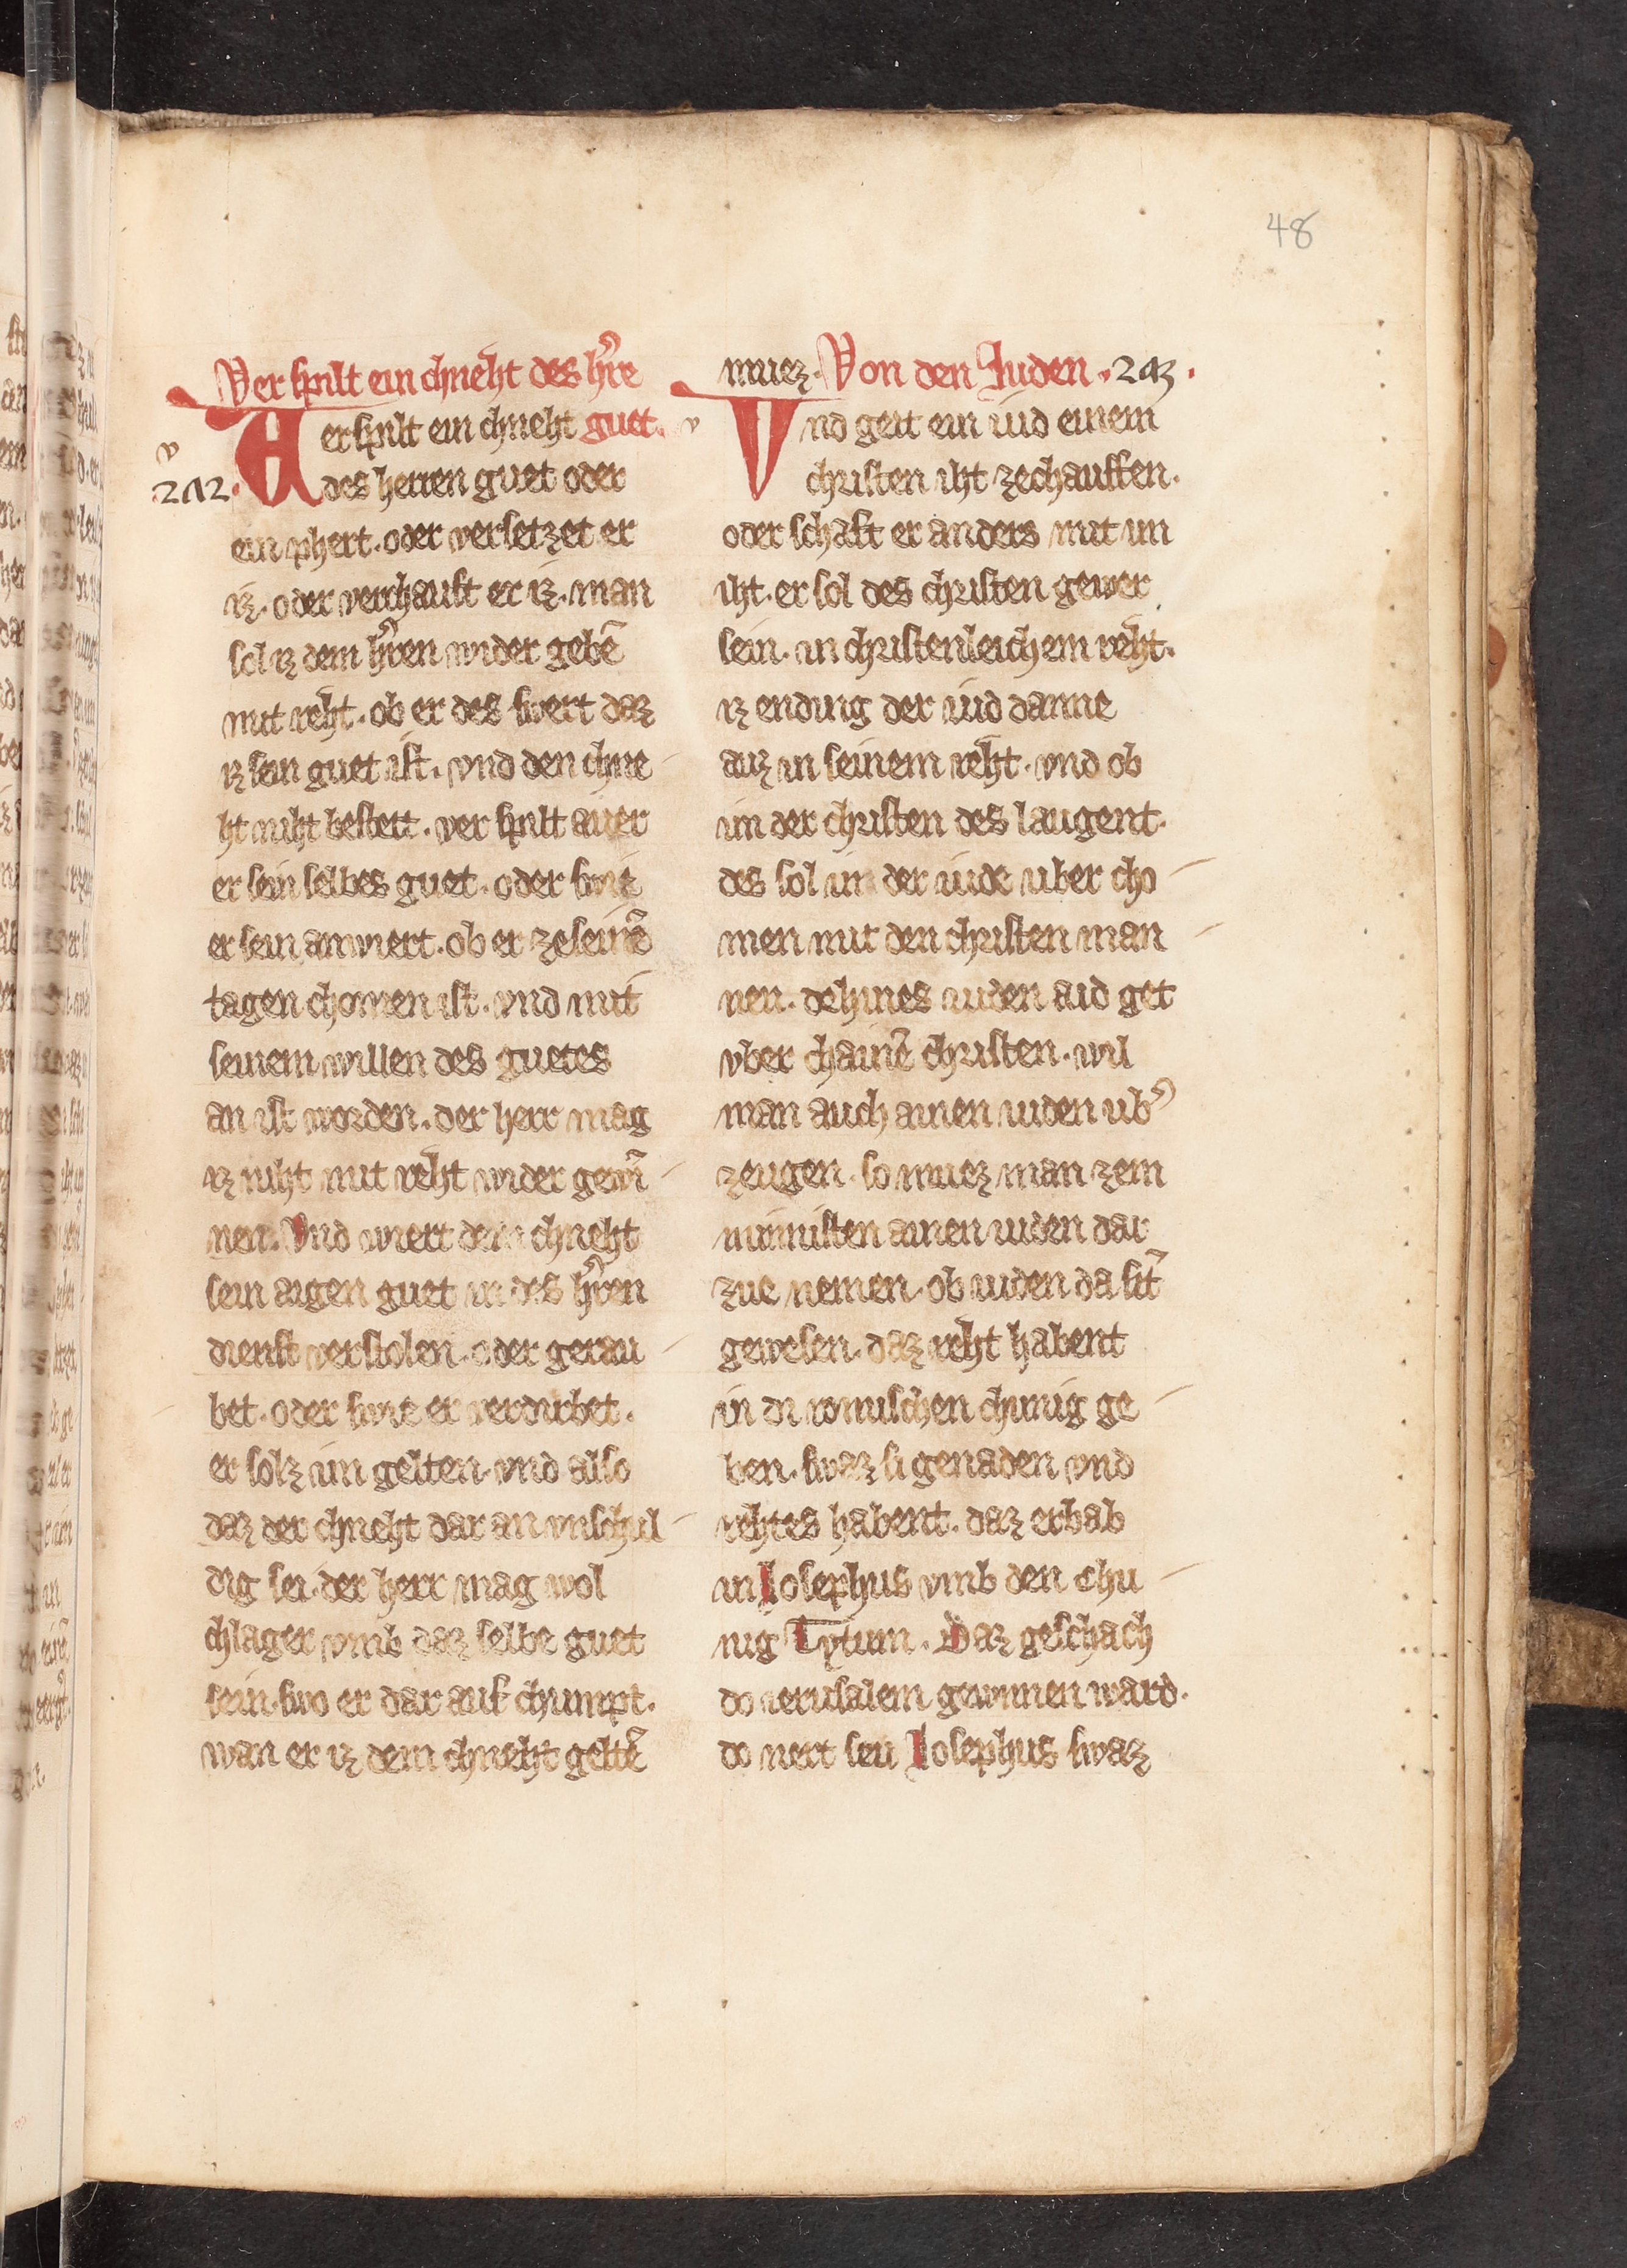 48
Verspilt ein chneht des hr̃re
Aerspilt ein chneht guet.
212. des herren guet oder
ein phert. oder versetzet er
iz. oder verchauft er iz. man
sol iz dem hr̃ren wider gebē
mit reht. ob er des swert daz
iz sein guet ist. vnd den chne
ht niht bestett. ver spilt auer
er sein selbes guet. oder swie
er sein anwiert. ob er ze seinē
tagen chomen ist. vnd mit
seinem willen des guetes
an ist worden. der herr mag
iz niht mit reht wider gewī
nen. Vnd wiert dem chneht
sein aigen guet in des hr̃ren
dienst verstolen. oder gerau
bet. oder swie er verdirbet.
er solz im gelten. vnd also
daz der chneht dar an vnschul
dig sei. der herr mag wol
chlager vmb daz selbe guet
sein. swo er dar auf chumpt.
wan er iz dem chneht geltē
muez. Von den Juden. 213.
Vnd geit ein iud einem
christen iht ze chauffen.
oder schaft er anders mit im
iht. er sol des christen gewer
sein. in christenleichem reht.
iz ending der iud danne
auz in seinem reht. vnd ob
im der christen des laugent.
des sol in der iude uber cho
men mit den christen man
nen. dehines iuden aid get
vber chainē christen. wil
man auch ainen iuden ub͛
zeugen. so muez man zem
minnisten ainen iuden dar
zue nemen. ob iuden da sīt
gewesen. daz reht habent
in di romischen chunig ge
ben. swaz si genaden vnd
rehtes habent. daz erbab
in Josephus vmb den chu
nig Tytum. Daz geschach
do ierusalem gewnnen ward.
do nert seu Josephus swaz